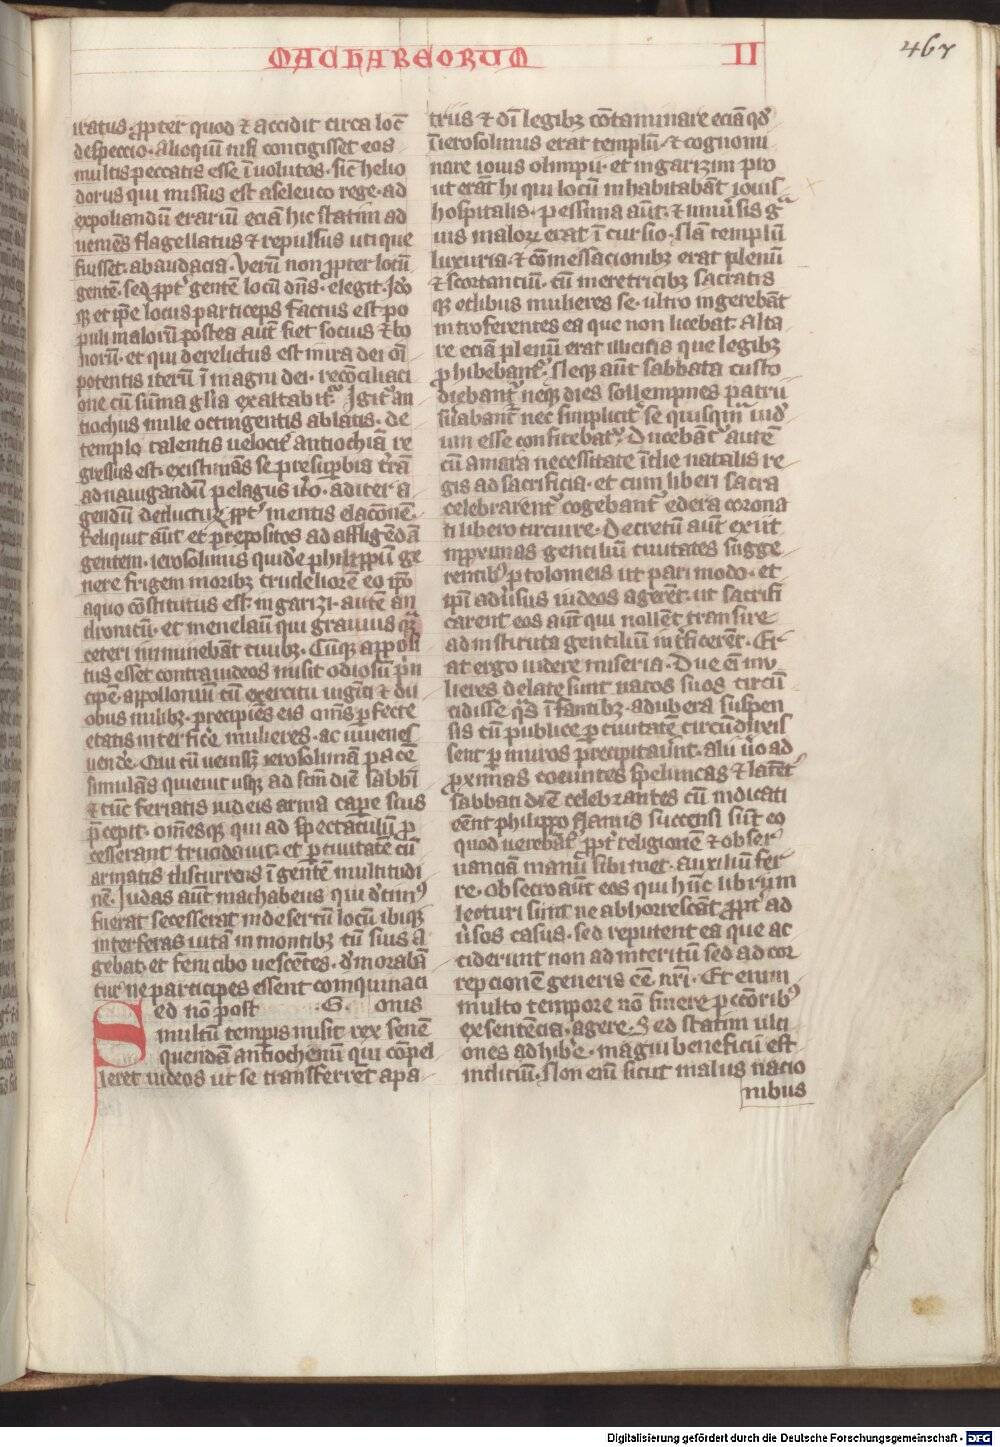 MACHABEORUM II
467
iratus. ꝓpter quod ⁊ accidit circa locū
despeccio. alioquin nisi contigisset eos
multis peccatis esse īuolutos. sic̄ helio
dorus qui missus est a seleuco rege. ad
expoliandū erariū eciā hic statim ad
ueniēs flagellatus ⁊ repulsus utique
fuisset. ab audacia. Verū non ꝓpter locū
gentē. sed ꝓpt͛ gentē locū dn̄s. elegit. Ido
qꝫ et ip̄e locus particeps factus est po
puli maloꝝ postea aut̄ fiet socius ⁊ bo
noꝝ. et qui derelictus est in ira dei om̄
potentis iterū ī magni dei. recōciliaci
one cū sūma gl̄ia exaltabit͛. Igit͛ an
tiochus mille octingentis ablatis. de
templo talentis uelocit͛ antiochiā re
gressus est. existimās se pre supbia t͛rā
ad nauigandū pelagus u͛o. ad iter a
gendū deducturꝫ ꝓpt͛ mentis elacōnē.
Reliquit aut̄ et prepositos ad affligēdā
gentem. ierosolimis quidē philippū ge
nere frigem moribꝫ crudeliorē eo ip̄o
a quo cōstitutus est. in garizi. autē an
dronicū. et menelaū qui grauius qͣꝫ
ceteri iminebant ciuibꝫ. Cūqꝫ apposi
tus esset contra iudeos misit odiosū p͛n
cipē appollonium cū exercitu uiginti ⁊ du
obus milibꝫ. precipiēs eis om̄s ꝑfecte
etatis interfice͛ mulieres. ac iuuenes
uende͛. Qui cū uenissꝫ ierosolimā pacē
simulās quieuit usqꝫ ad sc̄m diē sabbi
⁊ tūc feriatis iudeis arma cape͛ suis
p̄cepit. om̄esqꝫ qui ad spectaculū ꝓ
cesserant trucidauit. et ꝑ ciuitatē cū
armatis discurrens ī gentē multitudi
nē. Judas aut̄ machabeus qui d͛cimꝰ
fuerat secesserat in desertū locū ibiqꝫ
inter feras uitā in montibꝫ cū suis a
gebat. et feni cibo uescētes. d͛morabā
tur ne participes essent coinquinaci
Sed nō post .G. onis
multū tempis misit rex senē
quendā antiochenū qui cōpel
leret iudeos ut se transferret a pa
triis ⁊ dī legibꝫ cōtaminare eciā qd͛
ī ierosolimis erat templū. ⁊ cognomi
nare iouis olimpii. et in garizim pro
ut erāt hi qui locū inhabitabāt iouis
hospitalis. pessima aūt. ⁊ uniu͛sis gͣ
uis maloꝝ erat īcursio. Nā templū
luxuria. ⁊ cōmessacionibꝫ erat plenū
⁊ scortanciū. cū meretricibꝫ sacratis
qꝫ edibus mulieres se. ultro ingerebāt
intro ferentes ea que non licebat. Alta
re eciā plenū erat illicitis que legibꝫ
ꝓhibebant͛. Neqꝫ aūt sabbata custo
diebant͛ neqꝫ dies sollempnes patrii
s͛uabant͛ nec simplicit͛ se quisqm̄ iud͛
um esse confitebat͛. Ducebāt͛ autē
cū amara necessitate ī die natalis re
gis ad sacrificia. et cum liberi sacra
celebrarent͛ cogebant͛ edera corona
ti libero circuire. Decretū aūt exiit
in ꝓximas gentiliū ciuitates sugge
rentibꝰ ptolomeis ut pari modo. et
ip̄i adu͛sus iudeos agerēt. ut sacrifi
carent eos aūt qui nollēt transire
ad instituta gentilium int͛ficerēt. Er
at ergo uidere miseria. Due em̄ mu
lieres delate sunt natos suos circū
cidisse qͦs īfantibꝫ. ad ubera suspen
sis cū publice ꝑ ciuitatē circūduxis
sent ꝑ muros p͛cipitauūt. alii u͛o ad
ꝓximas coeuntes speluncas ⁊ latēt͛
sabbati diē celebrantes cū indicati
eent philippo flāmis succensi sūt eo
quod uerebāt͛ ꝓpt͛ religionē ⁊ obser
uanciā manū sibi met. auxiliū fer
re. Obsecro aūt eos qui hūc librum
lecturi sunt ne abhorrescāt ꝓpt͛ ad
u͛sos casus. sed reputent ea que ac
ciderunt non ad interitū sed ad cor
repcionē generis eē nr̄i. Et enim
multo tempore nō sinere pctōribꝰ
ex sentēcia. agere. Sed statim ulci
ones adhibe͛. magni beneficii est
indiciū. Non em̄ sicut in alus nacio
nibus
Digitalisierung gefördert durch die Deutsche Forschungsgemeinschaft - DFG